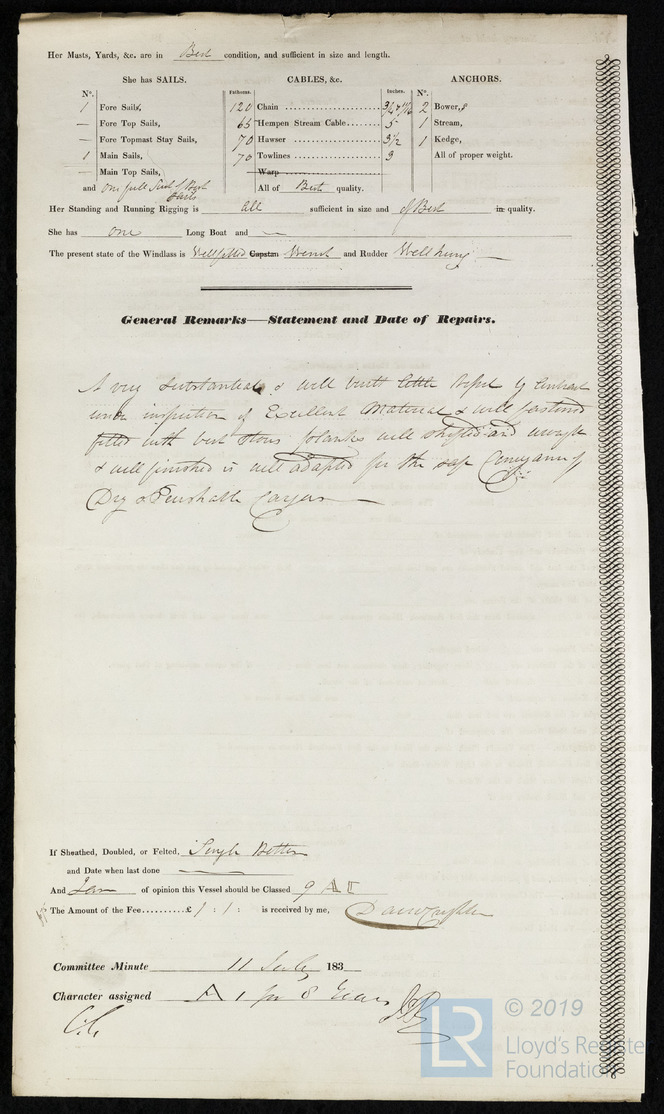 Her Masts, Yards, &c. are in Best condition, and sufficient in size and length.
She has SAILS. CABLES, &c. ANCHORS.
No. Fathoms. Inches. No.
1 Fore Sails, 120 Chain 3/4 & 11/16 2 Bowers,
— Fore Top Sails, 65 Hempen Stream Cable 5 1 Stream,
— Fore Topmast Stay Sails, 70 Hawser 3 1/2 1 Kedge,
1 Main Sails, 70 Towlines 3 All of proper weight.
— Main Top Sails, Warp
and one full Suit of Best All of Best quality.
Sails
Her Standing and Running Rigging is all sufficient in size and of Best in quality.
She has one Long Boat and —
The present state of the Windlass is Well fitted Capstan Winch and Rudder Well hung —
General Remarks—Statement and Date of Repairs.
A very Substantial & well built little by Contract
under inspection of Excellent Material & well fastened
fitted with best planks well shifted and
& well finished is well adapted for the safe Conveyance of
Dry & Perishable Cargoes —
If Sheathed, Doubled, or Felted, Single Bottom
and Date when last done —
And I am of opinion this Vessel should be Classed 9 A1
The Amount of the Fee..........£ 1 : 1 : is received by me,
Committee Minute 11 July 183
Character assigned A 1 for 8 Years
© 2019
LR
Lloyd's Register
Foundation